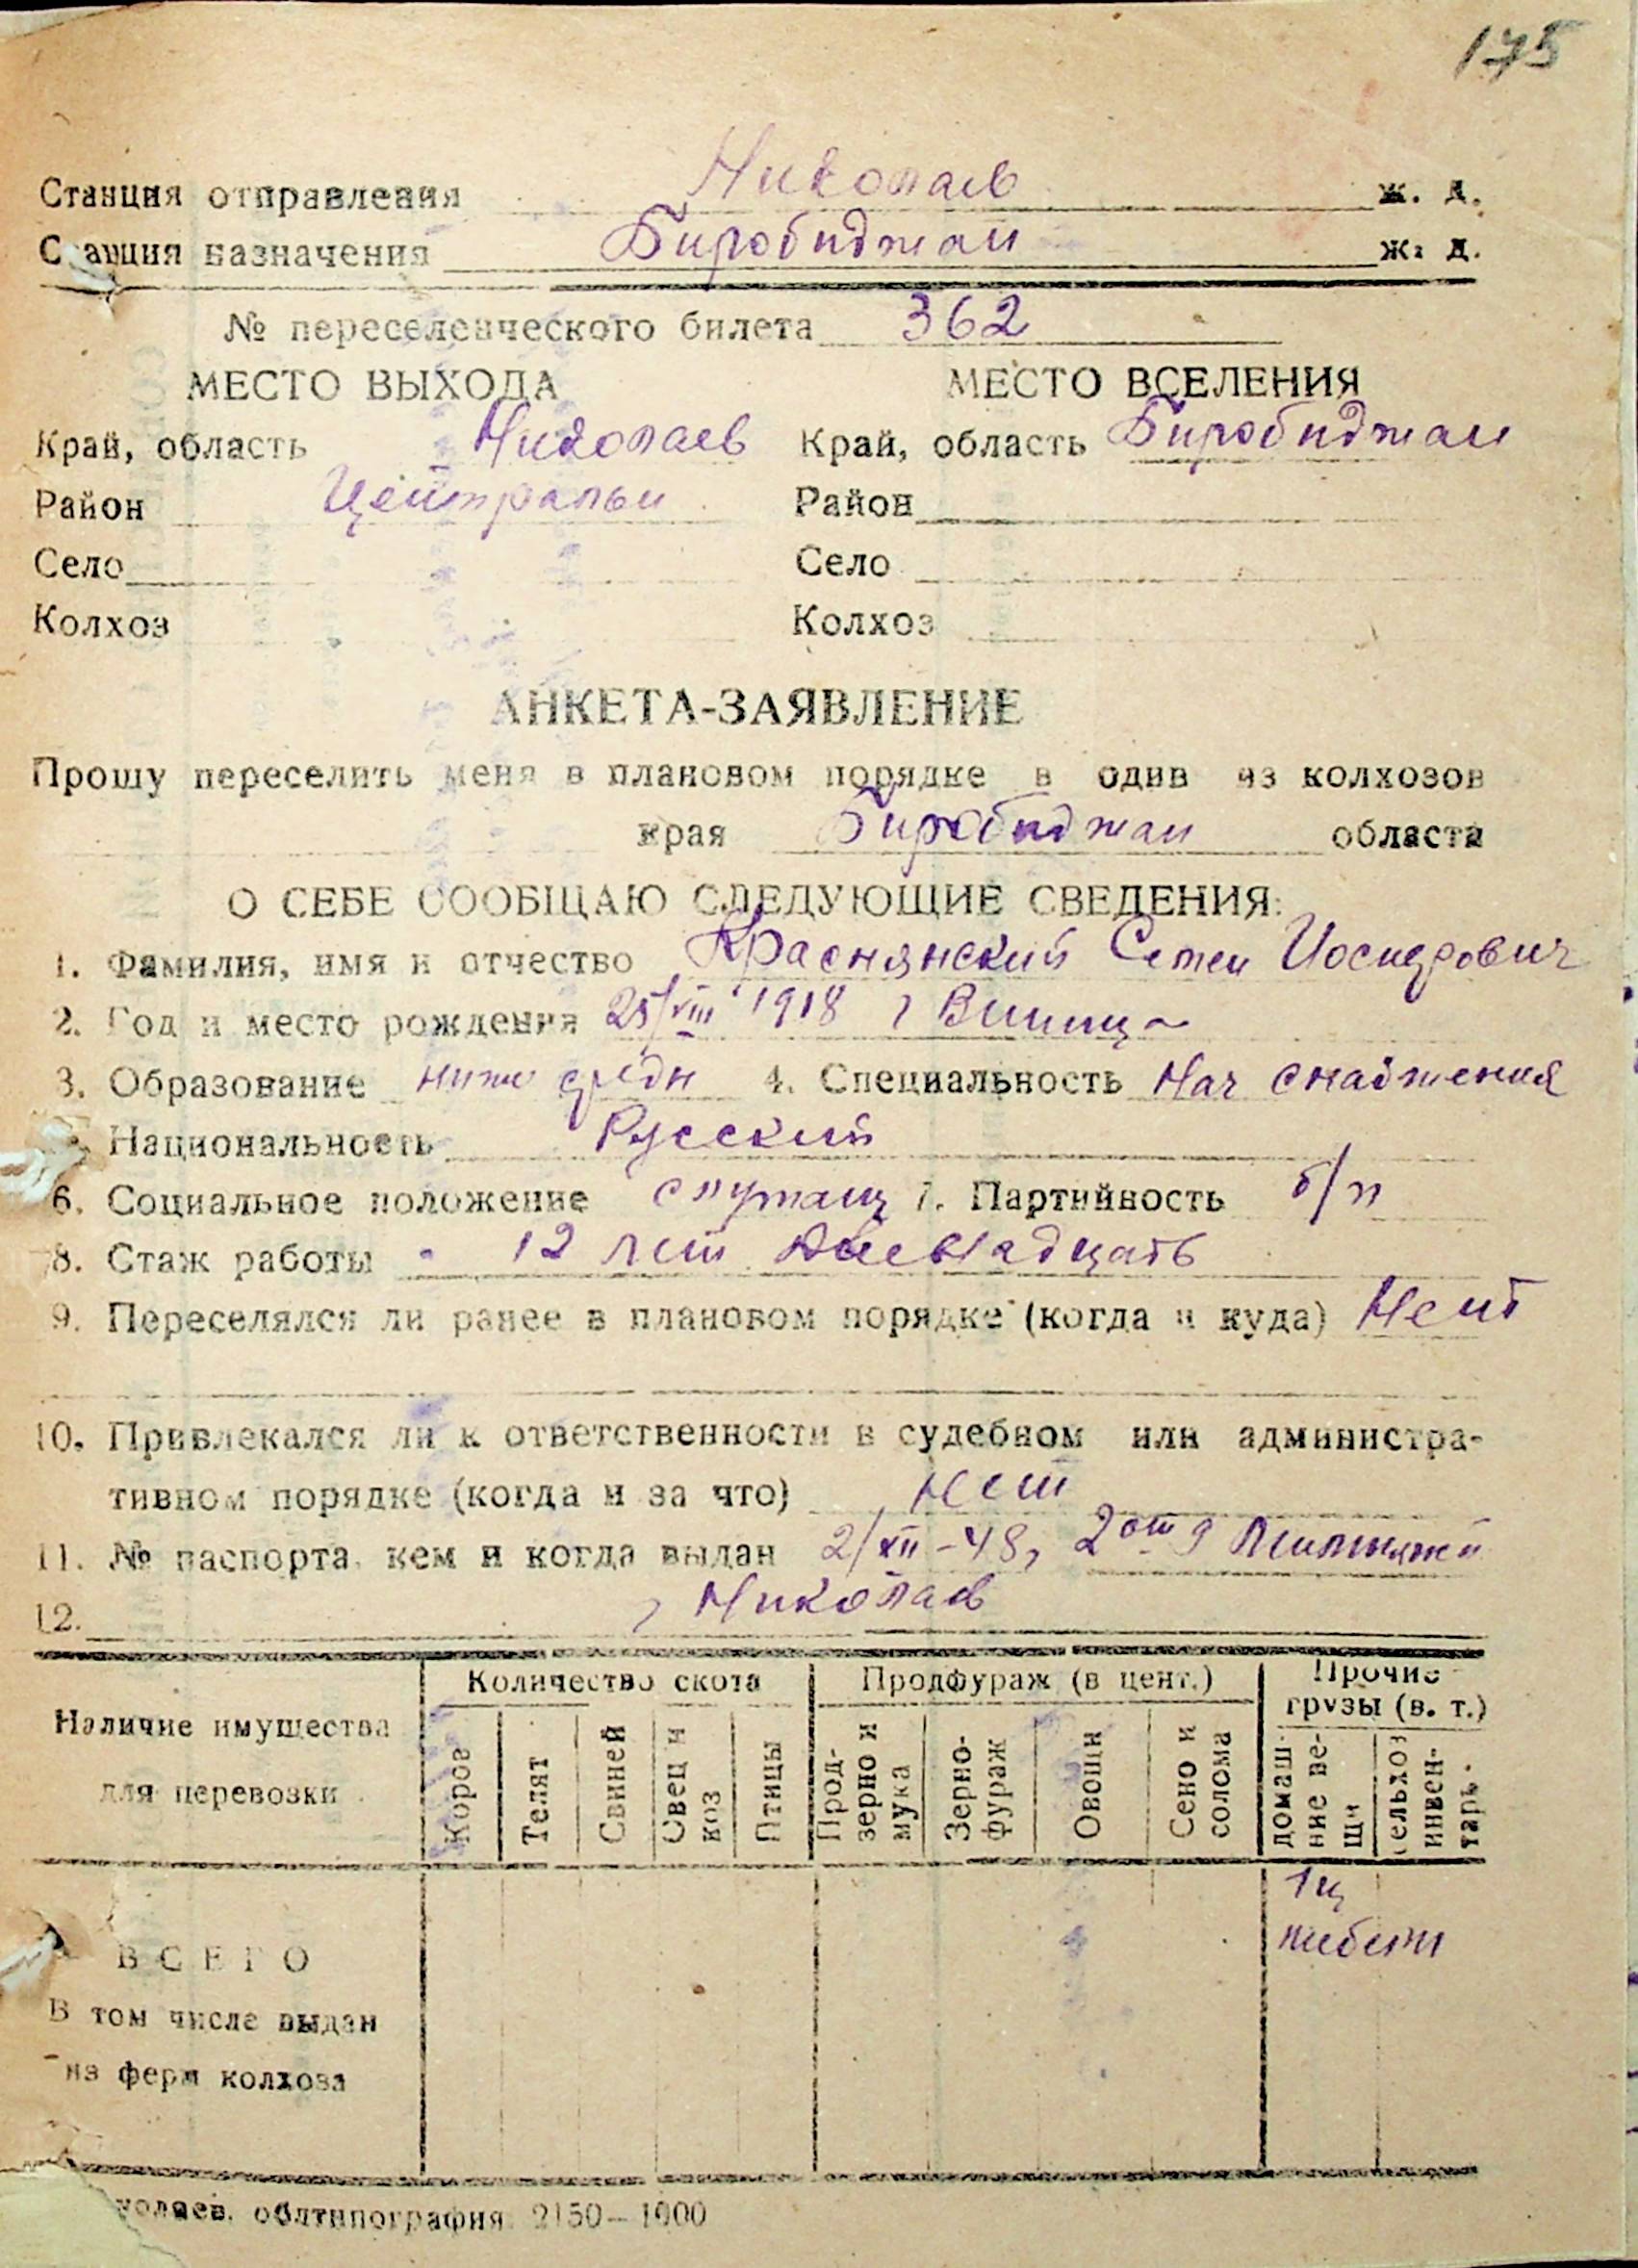 175
Станция отправления Николаев ж. д.
Станция назначения Биробиджан ж. д.
№ переселенческого билета 362
МЕСТО ВЫХОДА МЕСТО ВСЕЛЕНИЯ
Край, область Николаев Край, область Биробиджан
Район Централь Район
Село Село
Колхоз Колхоз
АНКЕТА-ЗАЯВЛЕНИЕ
Прошу переселить меня в плановом порядке в один из колхозов
края Биробиджан области
О СЕБЕ СООБЩАЮ СЛЕДУЮЩИЕ СВЕДЕНИЯ:
1. Фамилия, имя и отчество Краснянский Семен Иосифович
2. Год и место рождения 25/VIII 1918 г Винница
3. Образование ниже средн 4. Специальность Нач снабжения
Национальность Русский
6. Социальное положение служащ 7. Партийность б/п
8. Стаж работы 12 лет двенадцать
9. Переселялся ли ранее в плановом порядке (когда и куда) Нет
10. Привлекался ли к ответственности в судебном или администра-
тивном порядке (когда и за что) нет
11. № паспорта, кем и когда выдан 2/XII-48, 2 отд Милиции
12. г Николаев
Наличие имущества для перевозки
Количество скота
Продфураж (в цент.)
Прочие грузы (в. т.)
Коров
Телят
Свиней
Овец и коз
Птицы
Прод-зерно и мука
Зерно-фураж
Овощи
Сено и солома
домаш-ние ве-щи
сельхоз инвен-тарь.
1ц
мебели
ВСЕГО
В том числе выдан
из ферм колхоза
колаев. облтипография 2150—1000